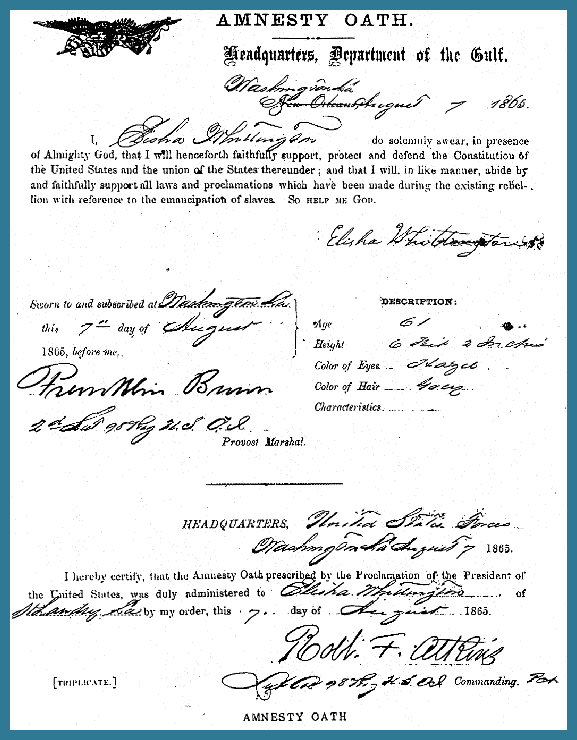 AMNESTY OATH.
Headquarters, Department of the Gulf.
Washington La
New Orleans, August 7 1865.
I, Elisha Whittington do solemnly swear, in presence
of Almighty God, that I will henceforth faithfully support, protect and defend the Constitution of
the United States and the union of the States thereunder; and that I will, in like manner, abide by
and faithfully support all laws and proclamations which have been made during the existing rebel-
lion with reference to the emancipation of slaves. So HELP ME GOD.
Elisha Whittington
Sworn to and subscribed at Washington La.
this 7th day of August
1865, before me,
Franklin
2d Lt 98 Reg U.S. C.I.
Provost Marshal.
DESCRIPTION:
Age 61
Height 6 Feet 2 Inches
Color of Eyes Hazel
Color of Hair Gray
Characteristics
HEADQUARTERS, United States Forces
Washington La August 7 1865.
I hereby certify, that the Amnesty Oath prescribed by the Proclamation of the President of
the United States, was duly administered to Elisha Whittington of
St Landry La by my order, this 7 day of August 1865.
Robt. F. Atkins
98 Reg U.S. C.I. Commanding. Post
[TRIPLICATE.]
AMNESTY OATH